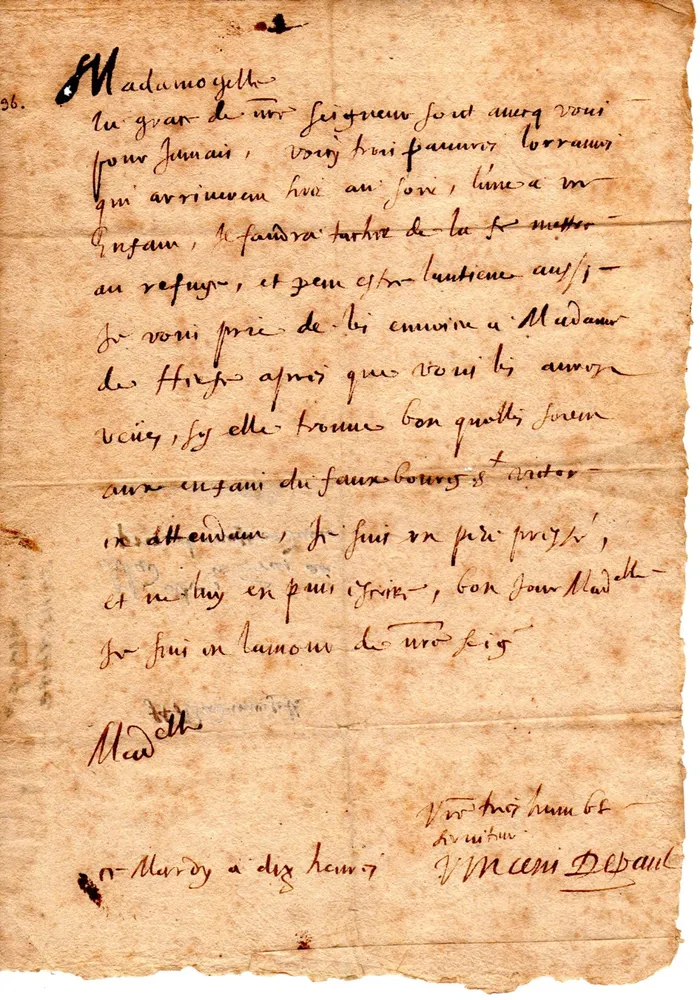 96.
Madamoyselle
La grace de nre seigneur soit avecq vous
pour Jamais, voicy trois pauvres lorraines
qui arriverent hier au soir, l'une a un
Enfant, Il faudra tacher de la fe mettre
au refuge, et peut estre lantiene aussi
Je vous prie de les envoier a Madame
de Herse apres que vous les aurez
veües, sy elle trouve bon quelles soient
aux enfans du fauxbourg st victor
en attendant, Je suis un peu pressé,
et ne luy en puis escrire, bon Jour Madelle
Je suis en lamour de nre seigr
Madelle
Vre tres humble
serviteur
ce Mardy a dix heures
Vincent Depaul